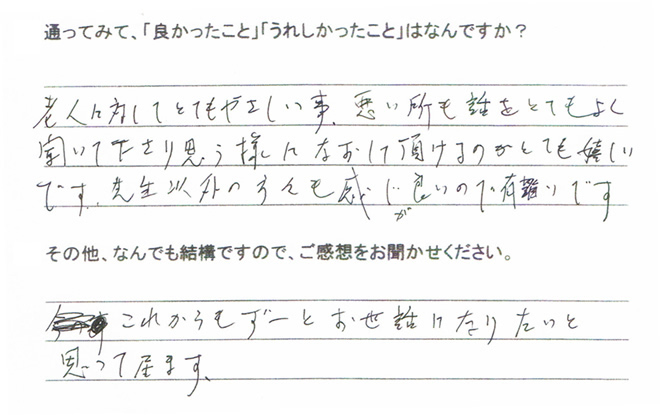 通ってみて、「良かったこと」「うれしかったこと」はなんですか？
老人に対してとてもやさしい事、悪い所も話をとてもよく
聞いて下さり思う様になおして頂けるのがとても嬉しい
です、先生以外の方々も感じが良いので有難いです
その他、なんでも結構ですので、ご感想をお聞かせください。
これからもずーとお世話になりたいと
思って居ます、